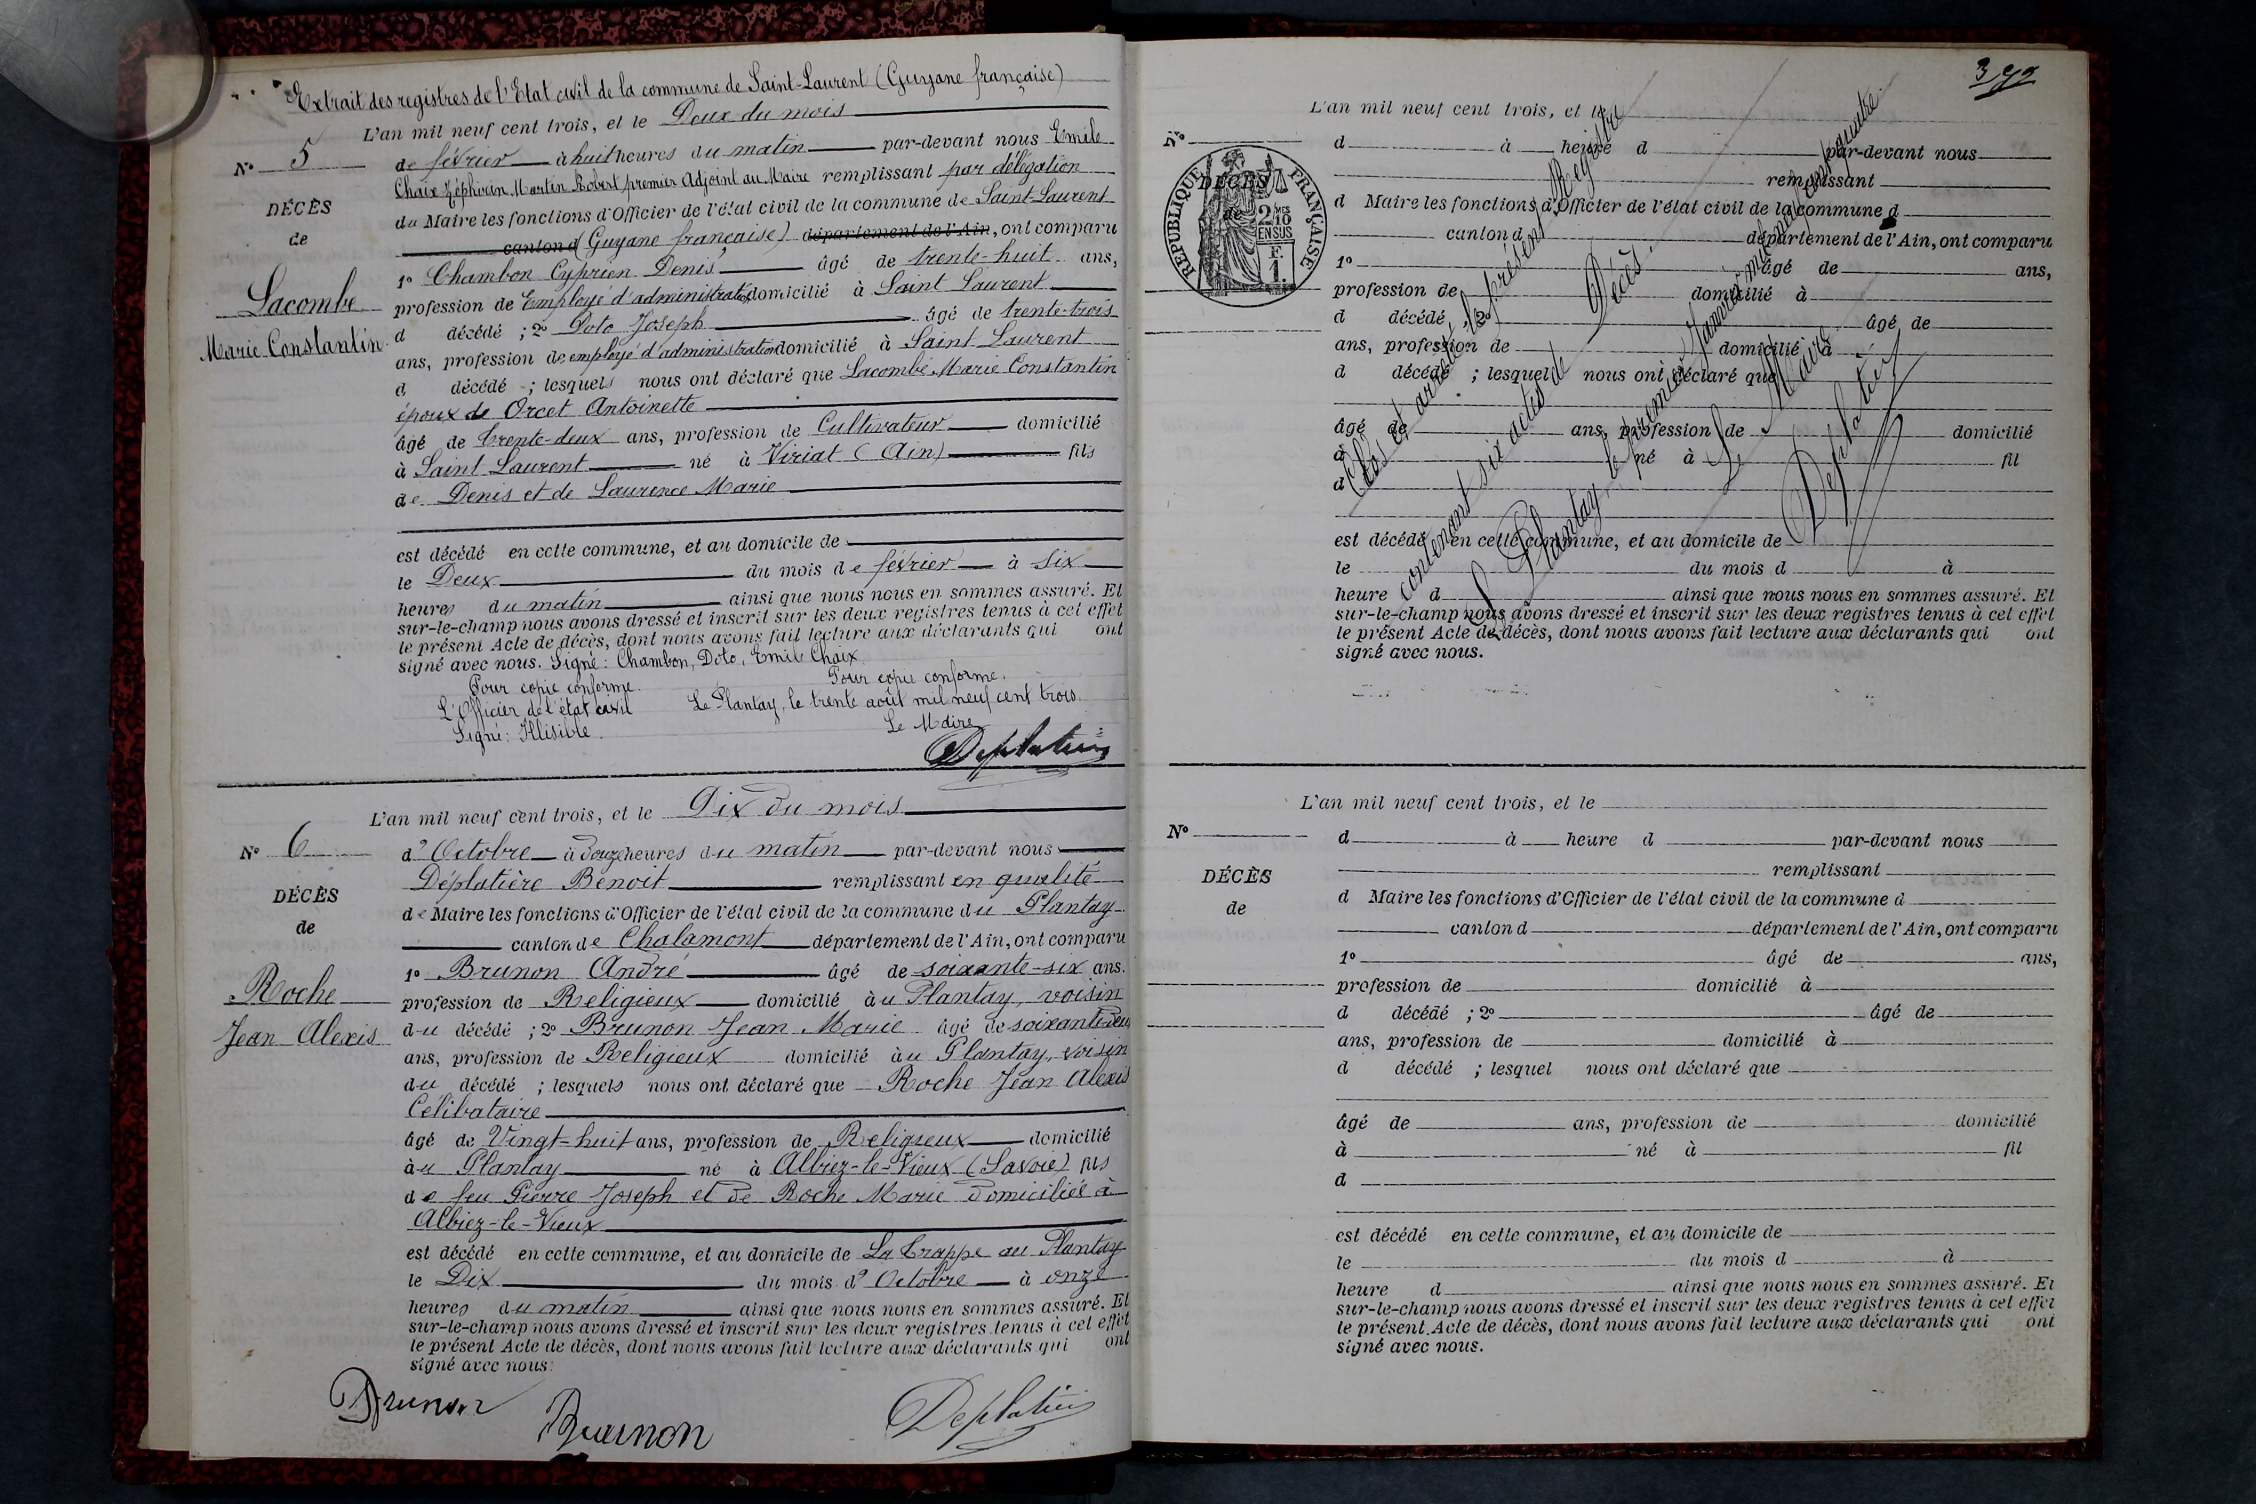 Extrait des registres de l'Etat civil de la commune de Saint-Laurent (Guyane française)
L'an mil neuf cent trois, et le Deux du mois
N° 5
de février à huit heures du matin par-devant nous Emile
Chaix Zéphirin Martin Robert premier Adjoint au Maire remplissant par délégation
DÉCÈS
du Maire les fonctions d'Officier de l'état civil de la commune de Saint-Laurent
de
canton d (Guyane française) département de l'Ain, ont comparu
1° Chambon Cyprien Denis âgé de trente-huit ans,
Lacombe
profession de Employé d'administration domicilié à Saint Laurent
Marie Constantin
d décédé ; 2° Doto Joseph âgé de trente-trois
ans, profession de employé d'administration domicilié à Saint Laurent
d décédé ; lesquels nous ont déclaré que Lacombe Marie Constantin
époux de Orcet Antoinette
âgé de trente-deux ans, profession de Cultivateur domicilié
à Saint Laurent né à Viriat (Ain) fils
de Denis et de Laurence Marie
est décédé en cette commune, et au domicile de
le Deux du mois de février à six
heures du matin ainsi que nous nous en sommes assuré. Et
sur-le-champ nous avons dressé et inscrit sur les deux registres tenus à cet effet
le présent Acte de décès, dont nous avons fait lecture aux déclarants qui ont
signé avec nous. Signé : Chambon, Doto, Emile Chaix
Pour copie conforme.
L'Officier de l'état civil
Signé : Illisible.
Pour copie conforme.
Le Plantay, le trente août mil neuf cent trois.
Le Maire
Déplatière
L'an mil neuf cent trois, et le Dix du mois
N° 6
d'Octobre à douze heures du matin par-devant nous
Déplatière Benoit remplissant en qualité
DÉCÈS
de Maire les fonctions d'Officier de l'état civil de la commune du Plantay
de
canton de Chalamont département de l'Ain, ont comparu
1° Brunon André âgé de soixante-six ans.
Roche
profession de Religieux domicilié au Plantay, voisin
Jean Alexis
du décédé ; 2° Brunon Jean Marie âgé de soixante deux
ans, profession de Religieux domicilié au Plantay, voisin
du décédé ; lesquels nous ont déclaré que Roche Jean Alexis
Célibataire
âgé de Vingt-huit ans, profession de Religieux domicilié
au Plantay né à Albiez-le-Vieux (Savoie) fils
de feu Pierre Joseph et de Roche Marie domiciliée à
Albiez-le-Vieux
est décédé en cette commune, et au domicile de La Trappe au Plantay
le Dix du mois d'Octobre à onze
heures du matin ainsi que nous nous en sommes assuré. Et
sur-le-champ nous avons dressé et inscrit sur les deux registres tenus à cet effet
le présent Acte de décès, dont nous avons fait lecture aux déclarants qui ont
signé avec nous.
Brunon
Brunon
Déplatière
L'an mil neuf cent trois, et le
N°
d à heure d par-devant nous
remplissant
RÉPUBLIQUE FRANÇAISE
DÉCÈS
de
2/10 EN SUS
F. 1.
d Maire les fonctions d'Officier de l'état civil de la commune d
canton d département de l'Ain, ont comparu
1° âgé de ans,
profession de domicilié à
d décédé ; 2° âgé de
ans, profession de domicilié à
d décédé ; lesquel nous ont déclaré que
âgé de ans, profession de domicilié
à né à fil
d
est décédé en cette commune, et au domicile de
le du mois d à
heure d ainsi que nous nous en sommes assuré. Et
sur-le-champ nous avons dressé et inscrit sur les deux registres tenus à cet effet
le présent Acte de décès, dont nous avons fait lecture aux déclarants qui ont
signé avec nous.
Clos et arrêté le présent Registre
contenant six actes de Décès.
Le Plantay le premier Janvier mil neuf cent quatre.
Le Maire
Déplatière
L'an mil neuf cent trois, et le
N°
d à heure d par-devant nous
remplissant
DÉCÈS
d Maire les fonctions d'Officier de l'état civil de la commune d
de
canton d département de l'Ain, ont comparu
1° âgé de ans,
profession de domicilié à
d décédé ; 2° âgé de
ans, profession de domicilié à
d décédé ; lesquel nous ont déclaré que
âgé de ans, profession de domicilié
à né à fil
d
est décédé en cette commune, et au domicile de
le du mois d à
heure d ainsi que nous nous en sommes assuré. Et
sur-le-champ nous avons dressé et inscrit sur les deux registres tenus à cet effet
le présent Acte de décès, dont nous avons fait lecture aux déclarants qui ont
signé avec nous.